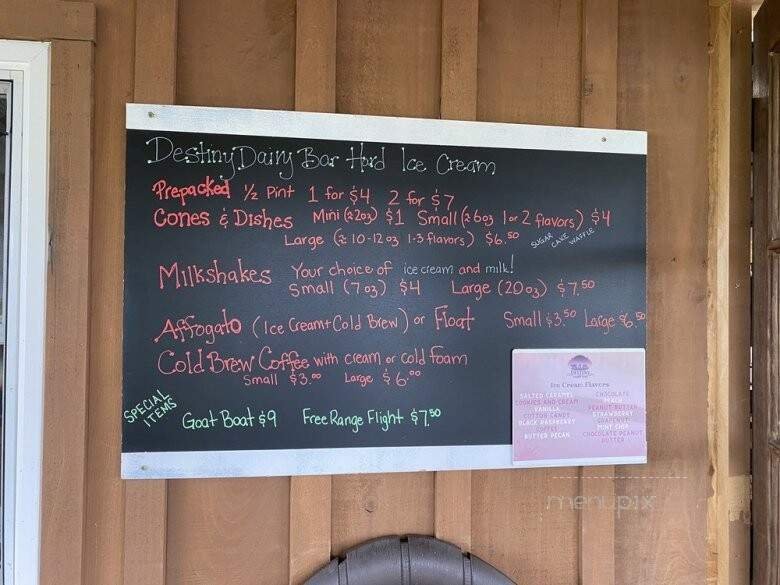 Destiny Dairy Bar Hard Ice Cream
Prepacked ½ Pint 1 for $4 2 for $7
Cones & Dishes Mini (≈2oz) $1 Small (≈6oz 1 or 2 flavors) $4
Large (≈10-12oz 1-3 flavors) $6.50
SUGAR CAKE WAFFLE
Milkshakes Your choice of ice cream and milk!
Small (7oz) $4 Large (20oz) $7.50
Affogato (Ice Cream+Cold Brew) or Float Small $3.50 Large $6.50
Cold Brew Coffee with cream or cold foam
Small $3.00 Large $6.00
SPECIAL ITEMS
Goat Boat $9 Free Range Flight $7.50
DESTINY
Ice Cream Flavors
SALTED CARAMEL
COOKIES AND CREAM
VANILLA
COTTON CANDY
BLACK RASPBERRY
COFFEE
BUTTER PECAN
CHOCOLATE
PEACH
PEANUT BUTTER
STRAWBERRY
MINT CHIP
CHOCOLATE PEANUT
BUTTER
menupix